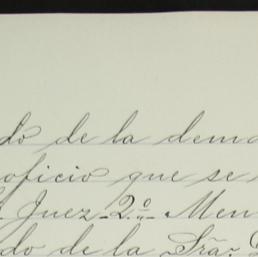 do de la dema
oficio que se
Juez 2.º Men
do de la Sra.